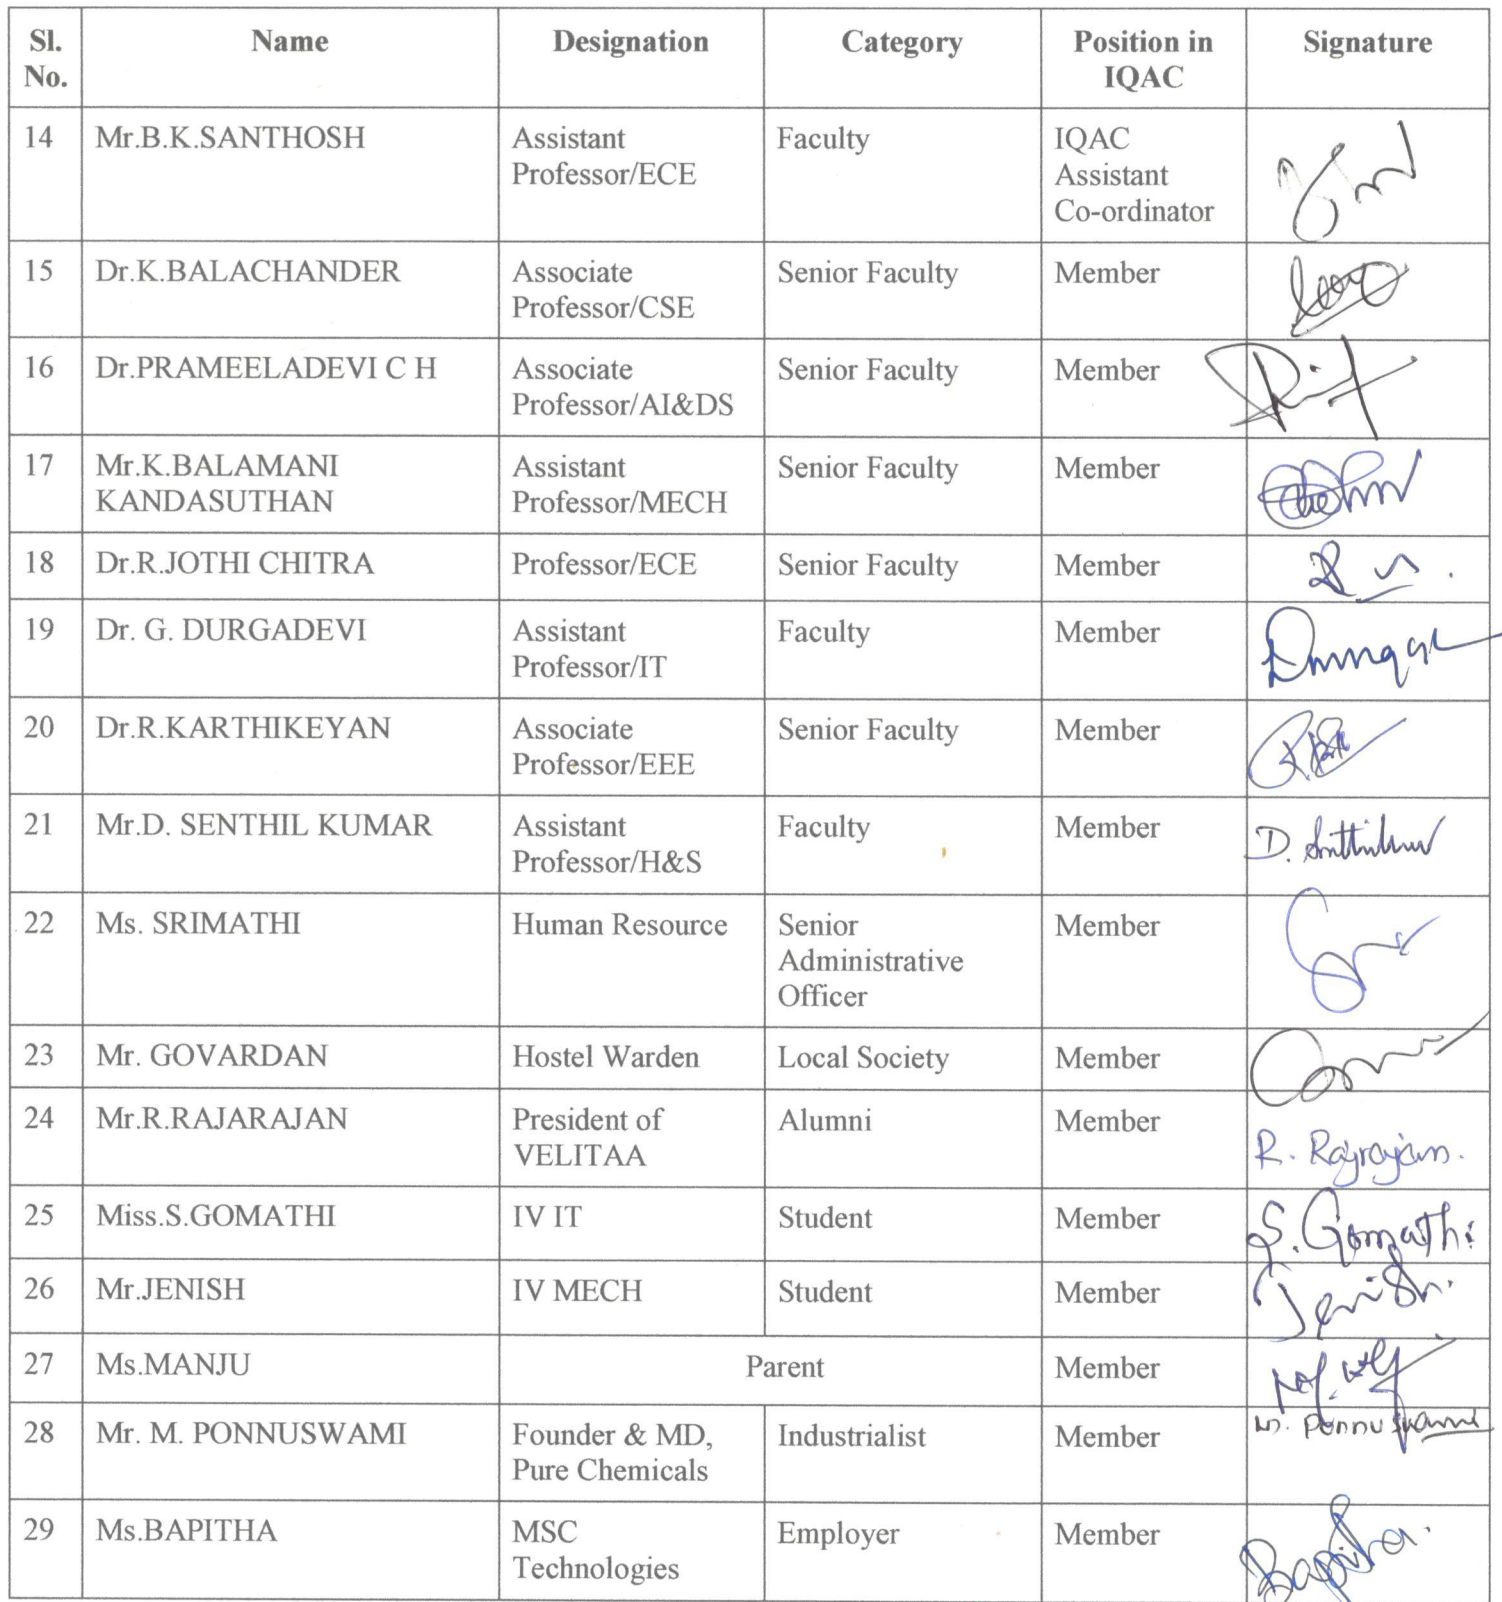 Sl. No. Name Designation Category Position in IQAC Signature
14 Mr.B.K.SANTHOSH Assistant Professor/ECE Faculty IQAC Assistant Co-ordinator
15 Dr.K.BALACHANDER Associate Professor/CSE Senior Faculty Member
16 Dr.PRAMEELADEVI C H Associate Professor/AI&DS Senior Faculty Member
17 Mr.K.BALAMANI KANDASUTHAN Assistant Professor/MECH Senior Faculty Member
18 Dr.R.JOTHI CHITRA Professor/ECE Senior Faculty Member
19 Dr. G. DURGADEVI Assistant Professor/IT Faculty Member
20 Dr.R.KARTHIKEYAN Associate Professor/EEE Senior Faculty Member
21 Mr.D. SENTHIL KUMAR Assistant Professor/H&S Faculty Member
22 Ms. SRIMATHI Human Resource Senior Administrative Officer Member
23 Mr. GOVARDAN Hostel Warden Local Society Member
24 Mr.R.RAJARAJAN President of VELITAA Alumni Member R. Rajrajan.
25 Miss.S.GOMATHI IV IT Student Member S. Gomathi
26 Mr.JENISH IV MECH Student Member Jenish.
27 Ms.MANJU Parent Member
28 Mr. M. PONNUSWAMI Founder & MD, Pure Chemicals Industrialist Member M. Ponnuswami
29 Ms.BAPITHA MSC Technologies Employer Member Bapitha.